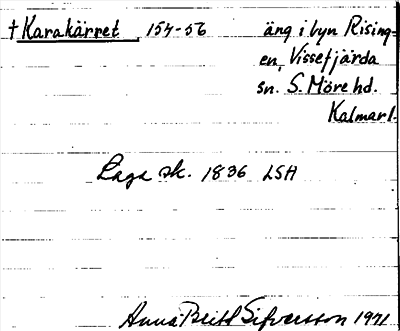 † Karakärret 154-56 äng i byn Rising=
en, Vissefjärda
sn. S. Möre hd.
Kalmar l.
Laga sk. 1836 LSA
Anna Britt Sifversson 1971